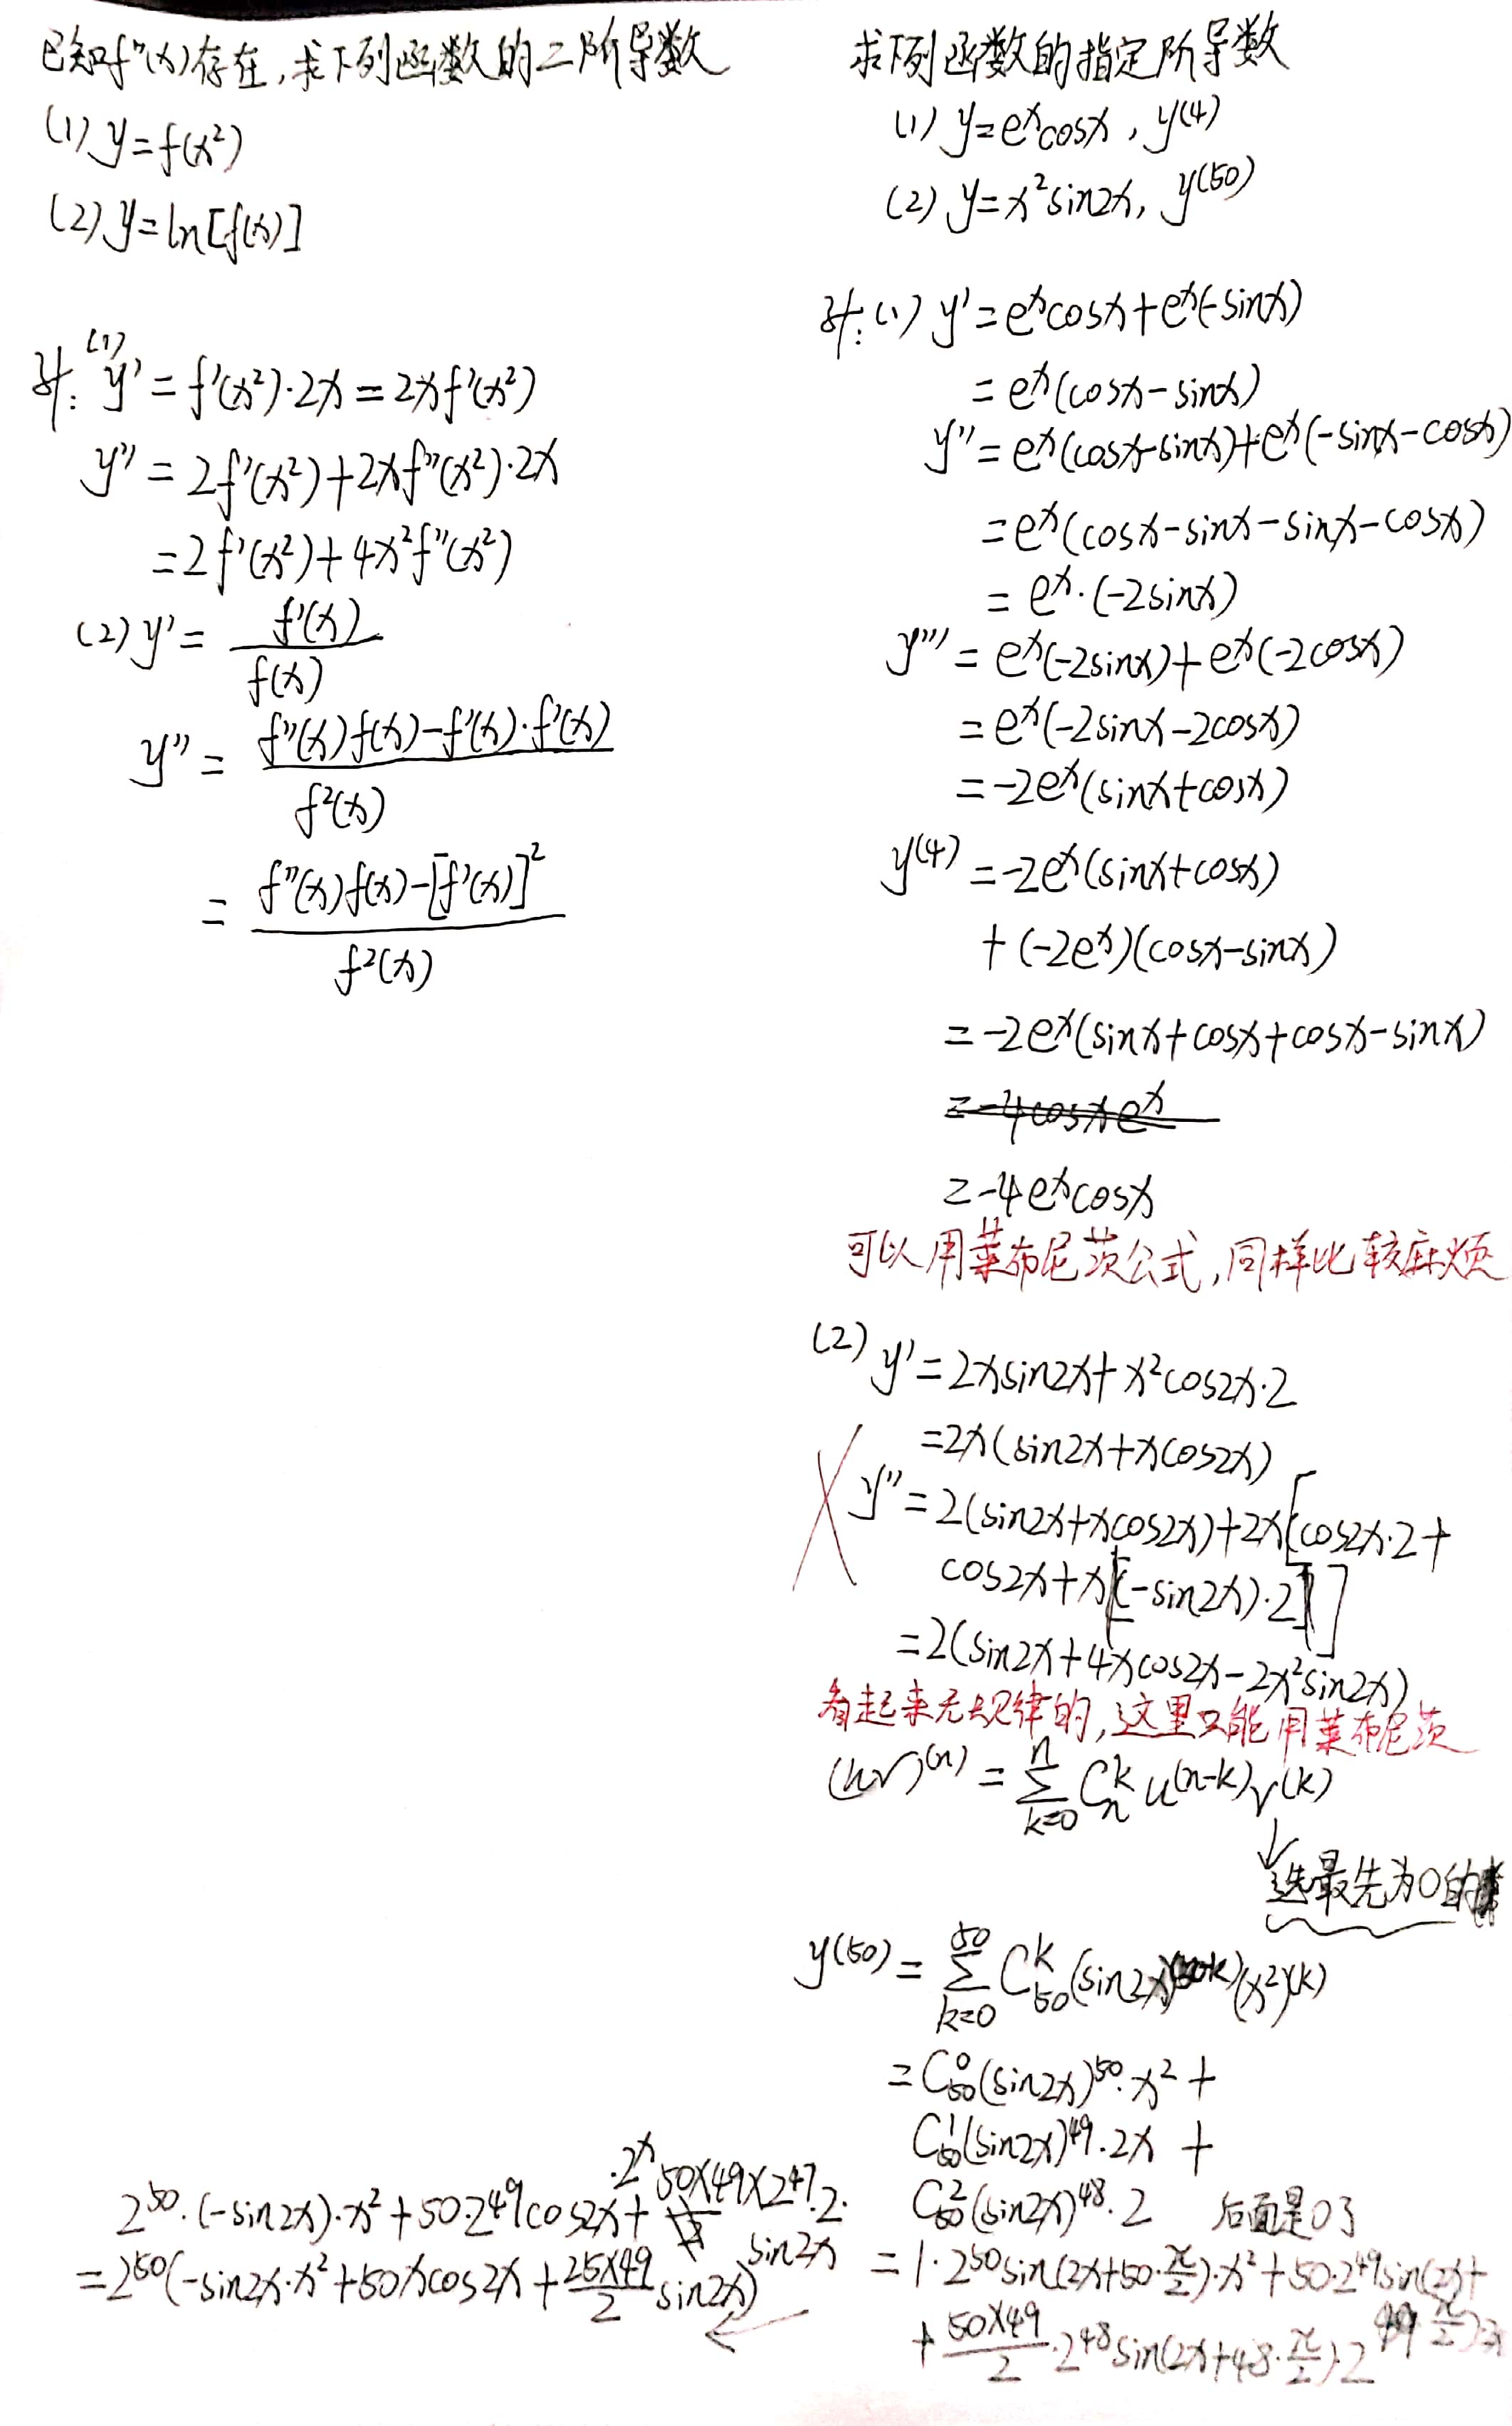 已知f''(x)存在,求下列函数的二阶导数
(1) y=f(x²)
(2) y=ln[f(x)]
解: (1) y'=f'(x²)·2x=2xf'(x²)
y''=2f'(x²)+2xf''(x²)·2x
=2f'(x²)+4x²f''(x²)
(2) y'= f'(x)/f(x)
y''= f''(x)f(x)-f'(x)·f'(x) / f²(x)
= f''(x)f(x)-[f'(x)]² / f²(x)
求下列函数的指定阶导数
(1) y=eˣcosx, y⁽⁴⁾
(2) y=x²sin2x, y⁽⁵⁰⁾
解: (1) y'=eˣcosx+eˣ(-sinx)
=eˣ(cosx-sinx)
y''=eˣ(cosx-sinx)+eˣ(-sinx-cosx)
=eˣ(cosx-sinx-sinx-cosx)
=eˣ·(-2sinx)
y'''=eˣ(-2sinx)+eˣ(-2cosx)
=eˣ(-2sinx-2cosx)
=-2eˣ(sinx+cosx)
y⁽⁴⁾=-2eˣ(sinx+cosx)
+(-2eˣ)(cosx-sinx)
=-2eˣ(sinx+cosx+cosx-sinx)
=-4cosxeˣ
=-4eˣcosx
可以用莱布尼茨公式,同样比较麻烦
(2) y'=2xsin2x+x²cos2x·2
=2x(sin2x+xcos2x)
y''=2(sin2x+xcos2x)+2x[cos2x·2+
cos2x+x[(-sin2x)·2]]
=2(sin2x+4xcos2x-2x²sin2x)
看起来无规律的,这里只能用莱布尼茨
(uv)⁽ⁿ⁾=∑ₖ₌₀ⁿ Cₙᵏ u⁽ⁿ⁻ᵏ⁾v⁽ᵏ⁾
↓
选最先为0的
y⁽⁵⁰⁾=∑ₖ₌₀⁵⁰ C₅₀ᵏ(sin2x)⁽⁵⁰⁻ᵏ⁾(x²)⁽ᵏ⁾
=C₅₀⁰(sin2x)⁵⁰·x²+
C₅₀¹(sin2x)⁴⁹·2x+
C₅₀²(sin2x)⁴⁸·2 后面是0了
=1·2⁵⁰sin(2x+50·π/2)·x²+50·2⁴⁹sin(2x+49·π/2)·2x
+50×49/2·2⁴⁸sin(2x+48·π/2)·2
2⁵⁰·(-sin2x)·x²+50·2⁴⁹cos2x·2x+50×49×2⁴⁷·2·sin2x
=2⁵⁰(-sin2x·x²+50xcos2x+25×49/2 sin2x)